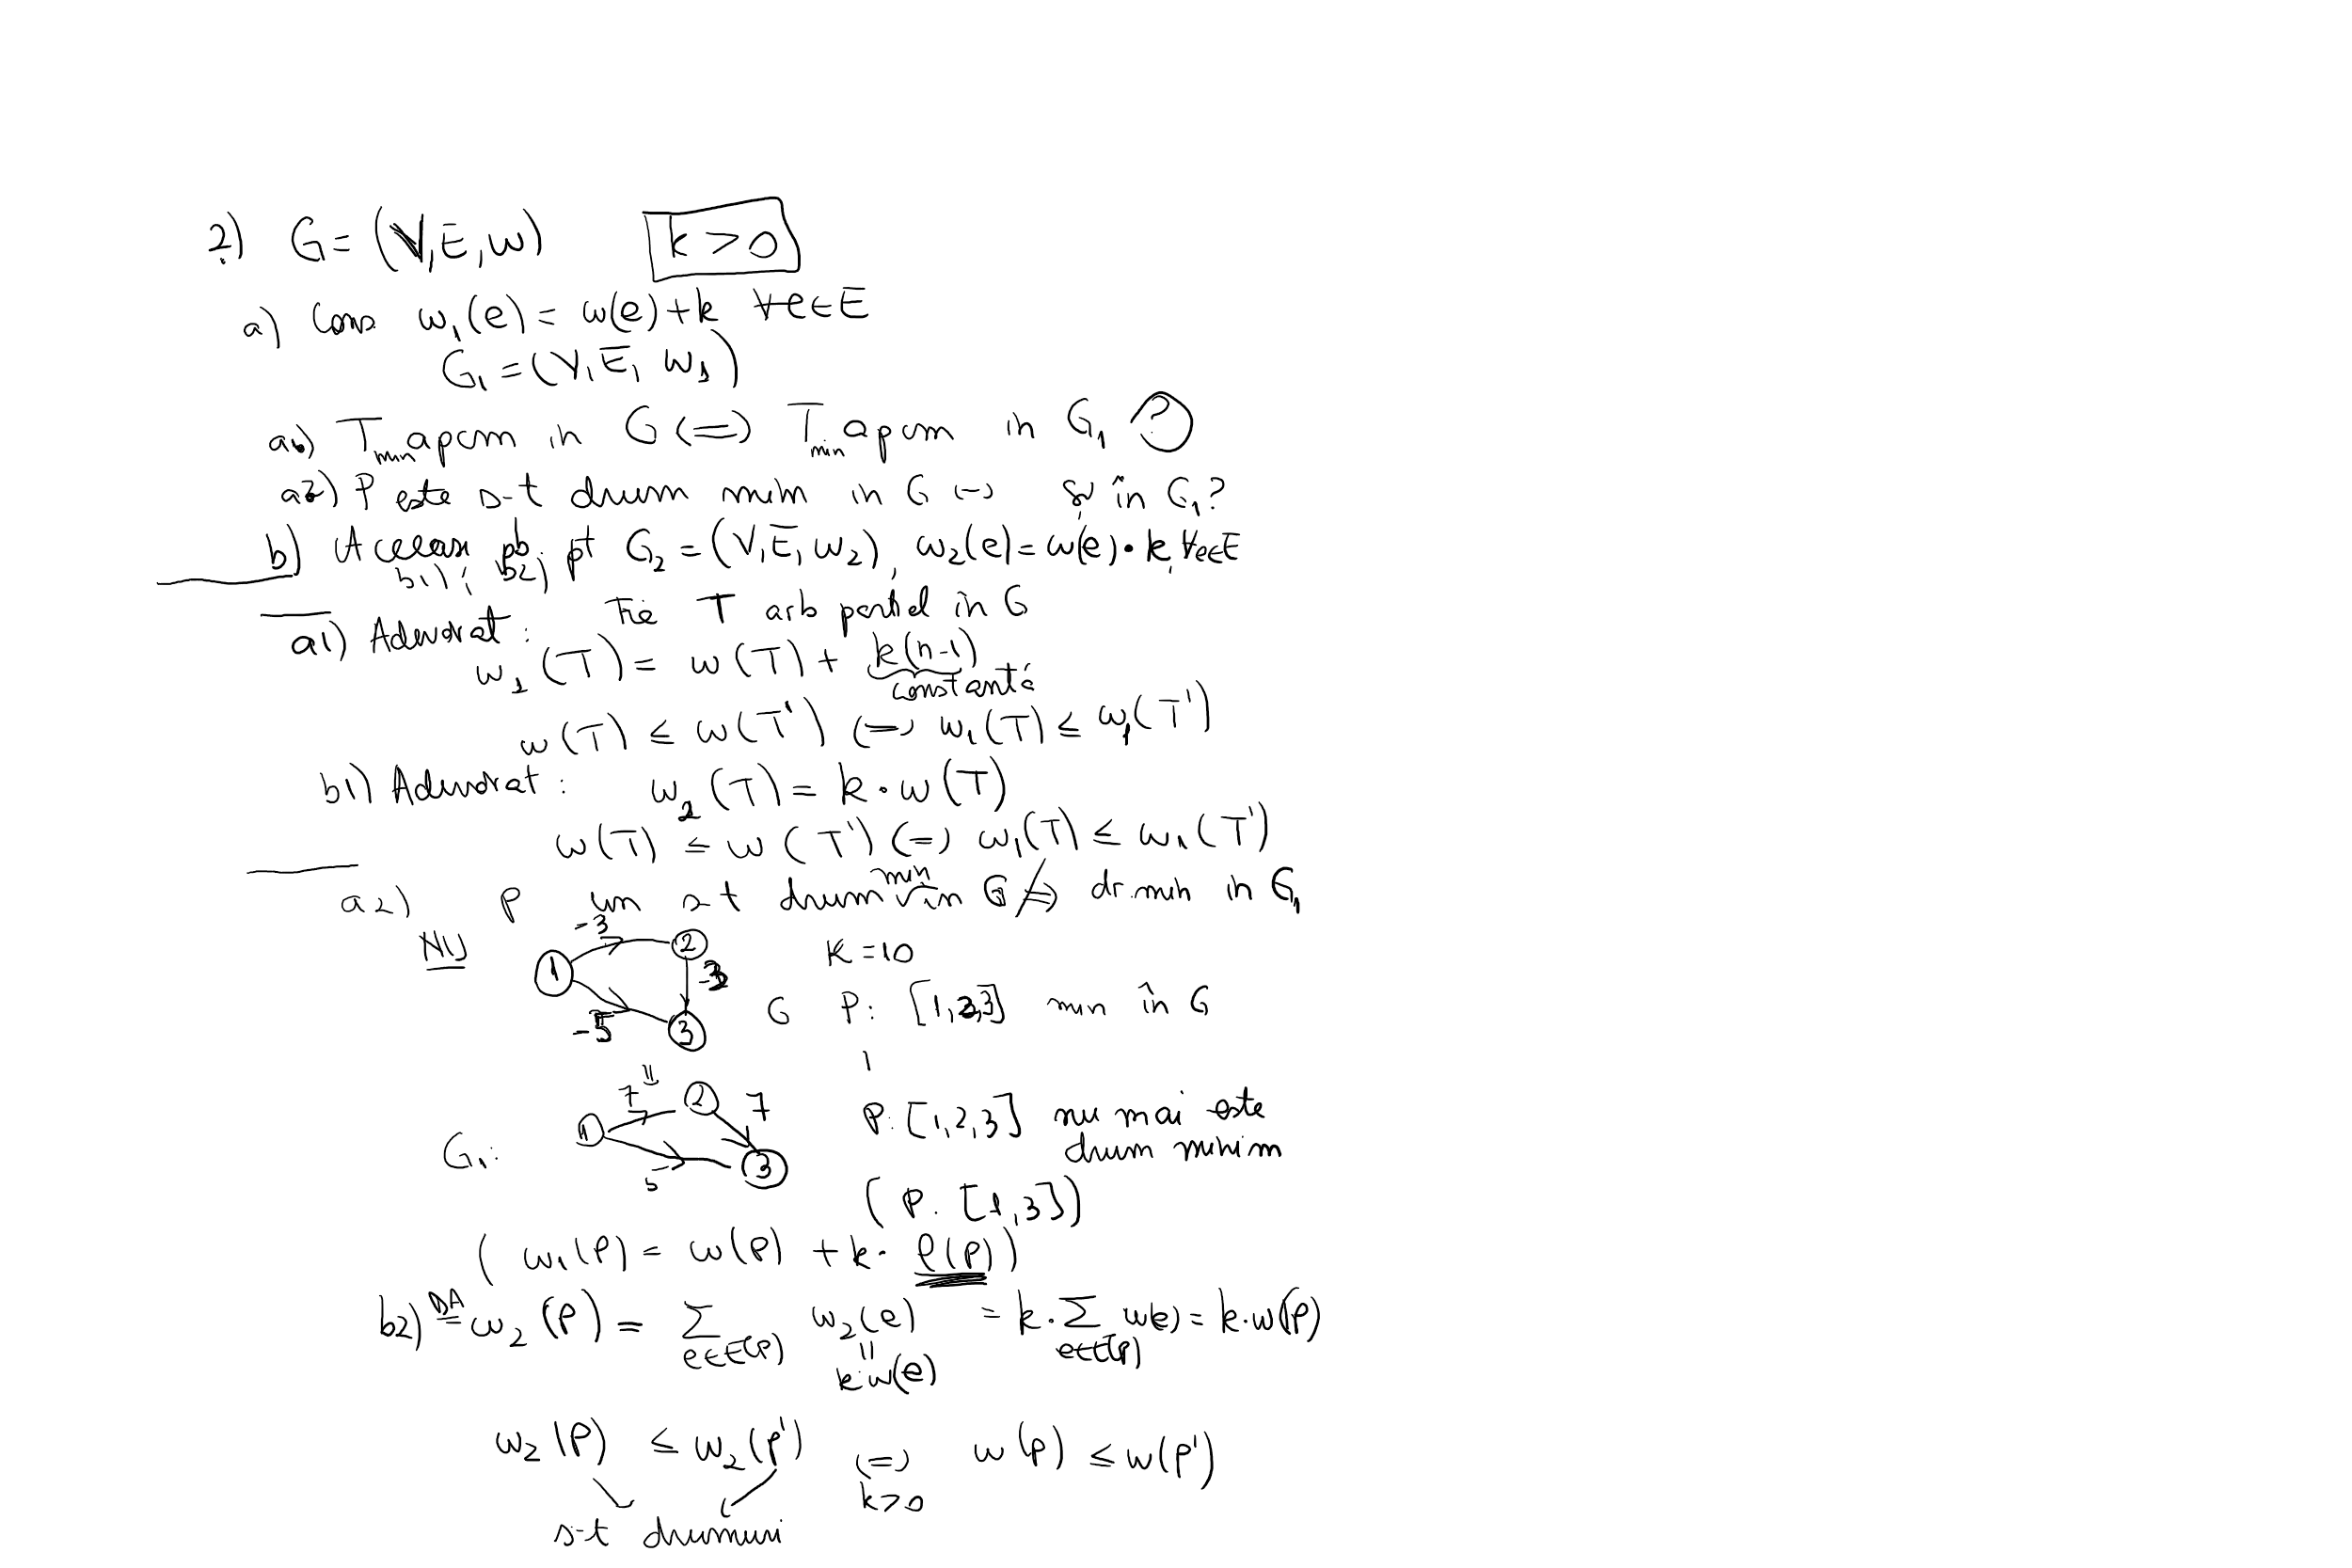 2) G = (V, E, w) k > 0
a) Cons w₁(e) = w(e) + k ∀e∈E
G₁ = (V, E, w₁)
a1) T min apcm in G (=) T min apcm in G₁ ?
a2) P este s-t drum minim in G (=) și în G₁?
b) Aceleași pb. pt G₂ = (V, E, w₂), w₂(e) = w(e)·k, ∀e∈E
b1); b2)
a1) Adevărat: Fie T arb parțial în G
w₁(T) = w(T) + k(n-1)
constantă
w(T) ≤ w(T') (=) w₁(T) ≤ w₁(T')
b1) Adevărat: w₂(T) = k·w(T)
w(T) ≤ w(T') (=) w₁(T) ≤ w₁(T')
a2) P un s-t drum min în G ⇏ dr. min in G₁
NU
-3
1 2 K = 10
-3
G P: [1,2,3] min în G
-5 3
7 2 7 P: [1,2,3] nu mai este
1 drum minim
G₁: 3
5
(P: [1,3])
(w₁(P) = w(P) + k·l(P))
b2) DA w₂(P) = Σ w₂(e) = k·Σ w(e) = k·w(P)
e∈E(P) = e∈E(P)
k·w(e)
w₂(P) ≤ w₂(P') (=) w(P) ≤ w(P')
k>0
s-t drumuri